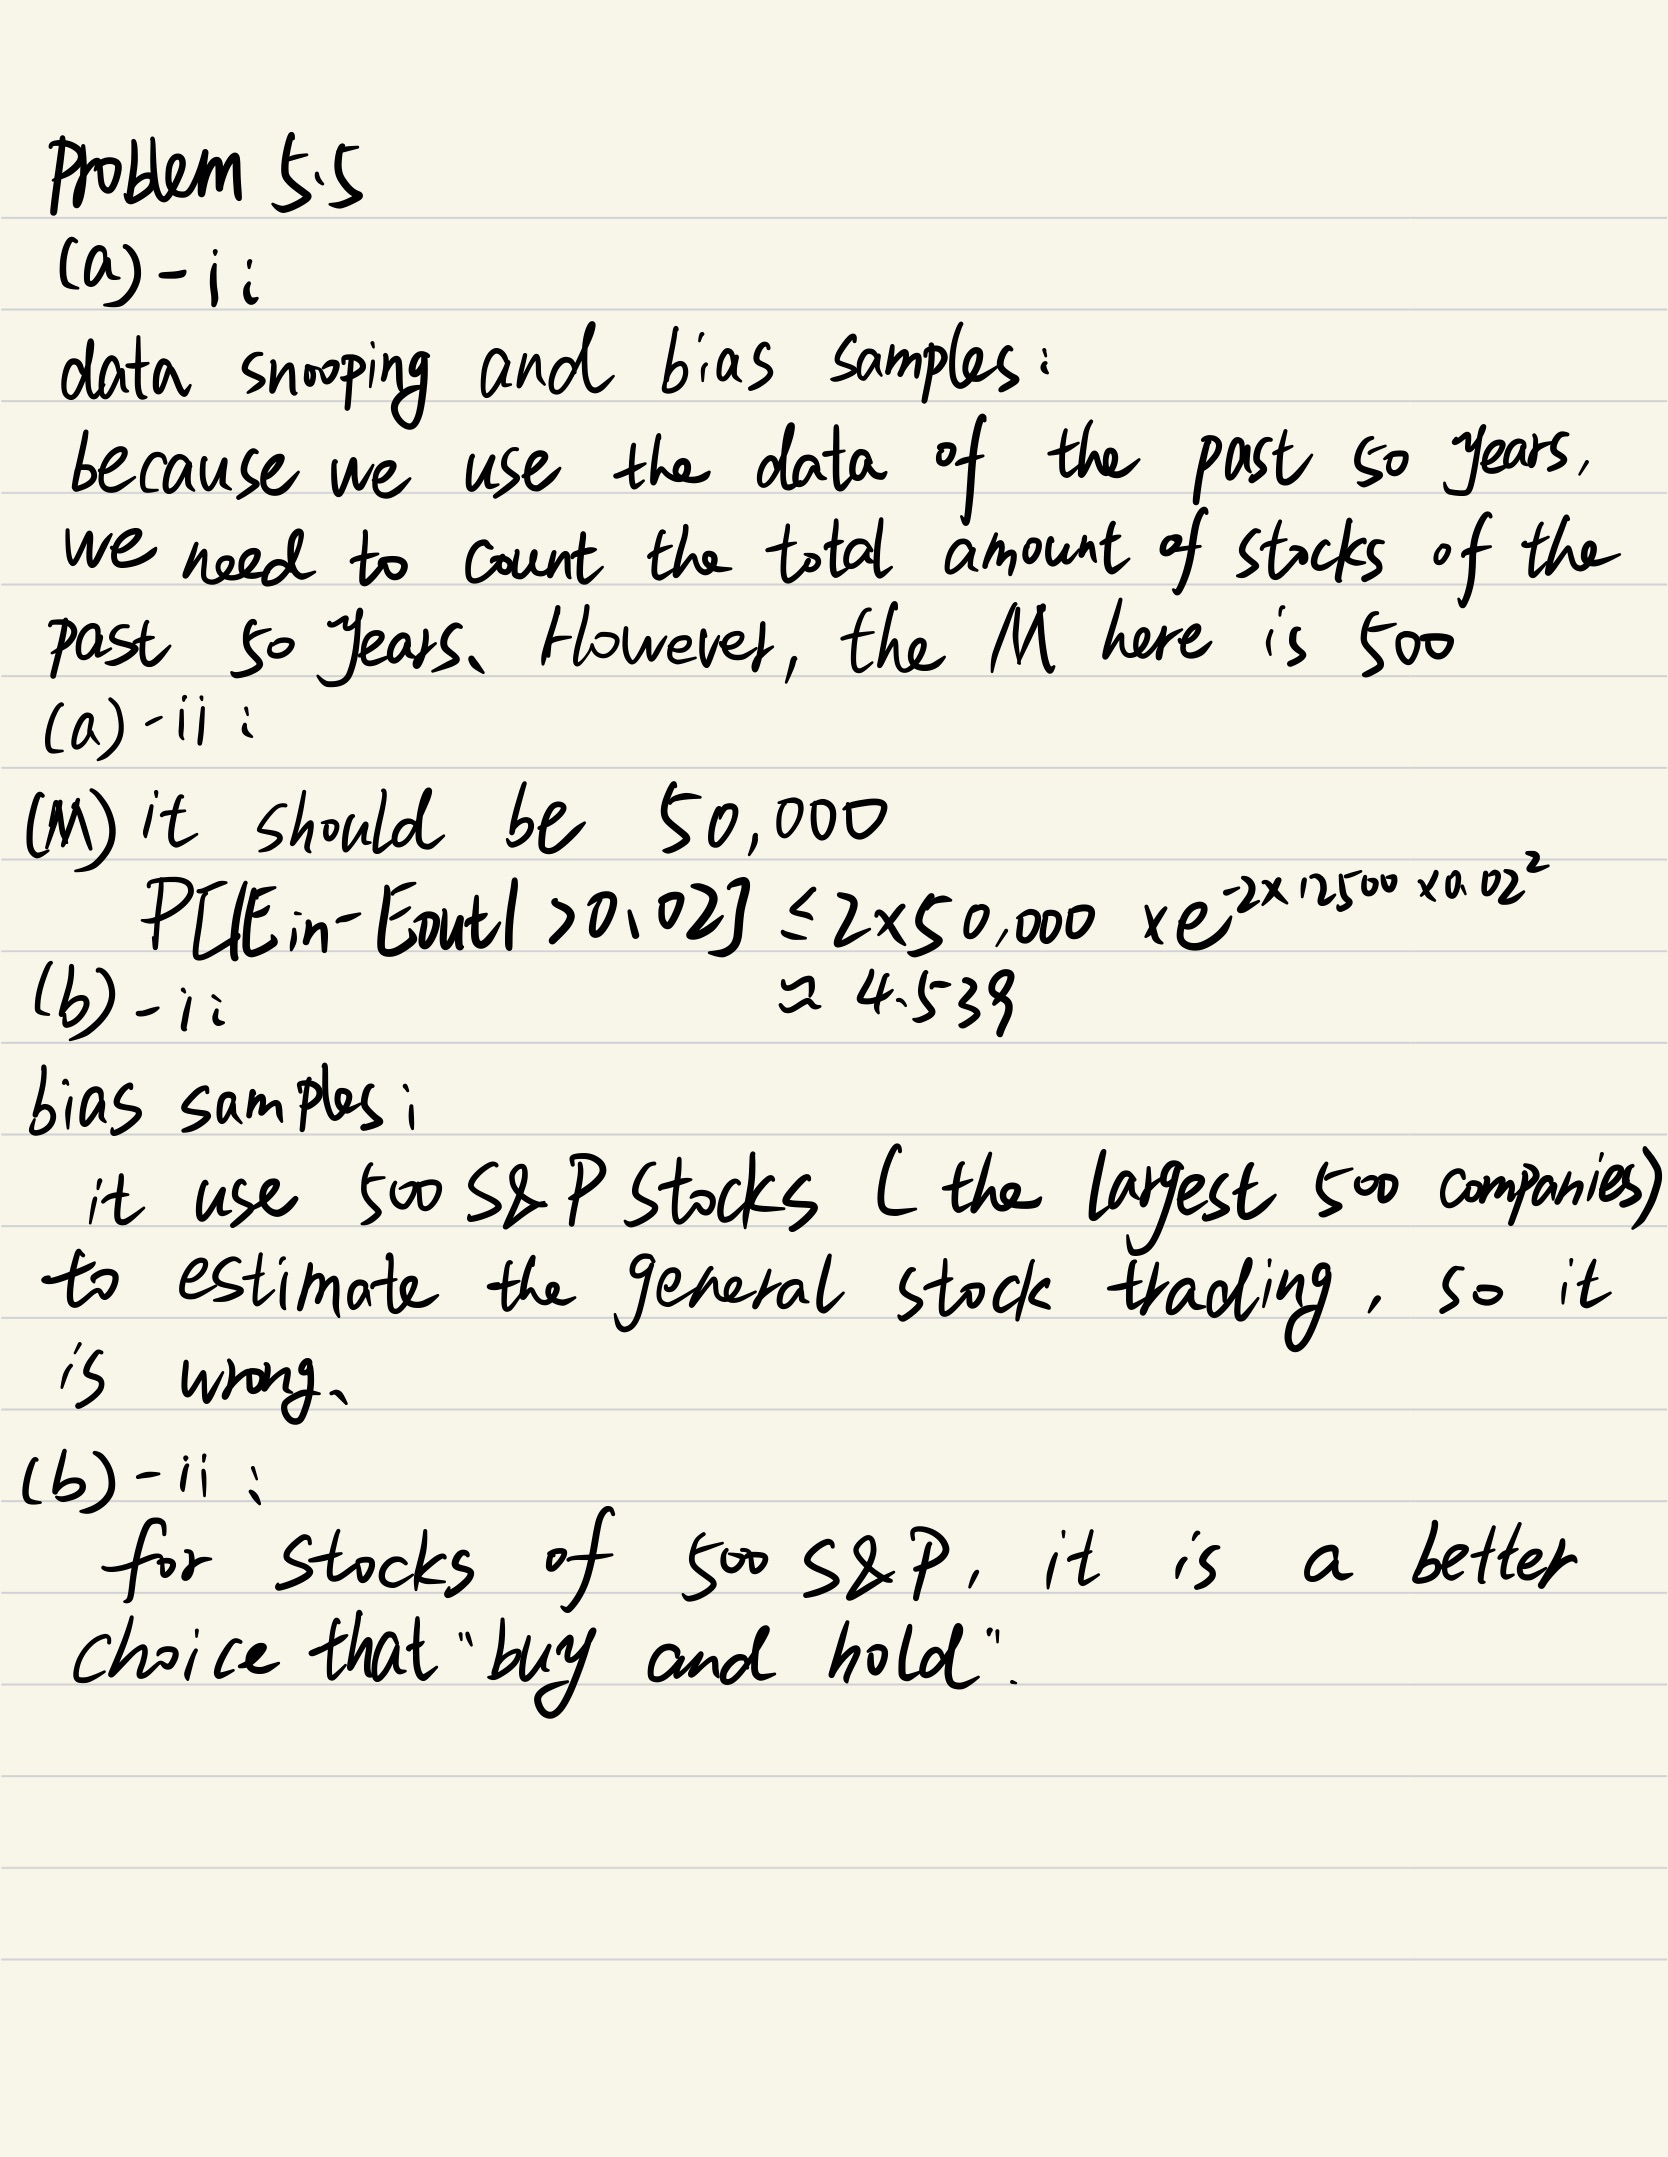 Problem 5.5
(a)-i:
data snooping and bias samples:
because we use the data of the past 50 years,
we need to count the total amount of stocks of the
past 50 years. However, the M here is 500
(a)-ii:
(M) it should be 50,000
P[|Ein-Eout|>0.02] ≤ 2×50,000 ×e^-2×12500×0.02²
(b)-i: ≈ 4.539
bias samples:
it use 500 S&P stocks (the largest 500 companies)
to estimate the general stock trading, so it
is wrong.
(b)-ii:
for stocks of 500 S&P, it is a better
choice that "buy and hold".